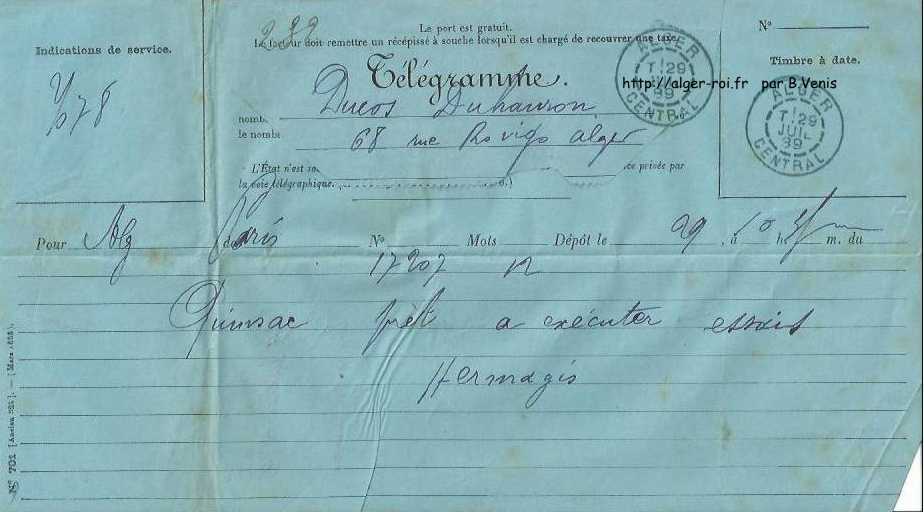 Le port est gratuit.
Le facteur doit remettre un récépissé à souche lorsqu'il est chargé de recouvrer une taxe.
Indications de service.
Télégramme.
Nº
Timbre à date.
http://alger-roi.fr par B.Venis
ALGER
T1 29
JUIL
99
CENTRAL
ALGER
T1 29
JUIL
99
CENTRAL
Ducos Duhauron
nomb.
le nomb.
68 rue Rovigo Alger
L'État n'est so
ce privée par
la voie télégraphique.
Pour Alg de Paris Nº 17207 Mots 12 Dépôt le 29 à 10 h m. du
Quinsac prêt a exécuter essais
Hermagis
Nº 701 [Ancien 224]. — [Mars 1898].